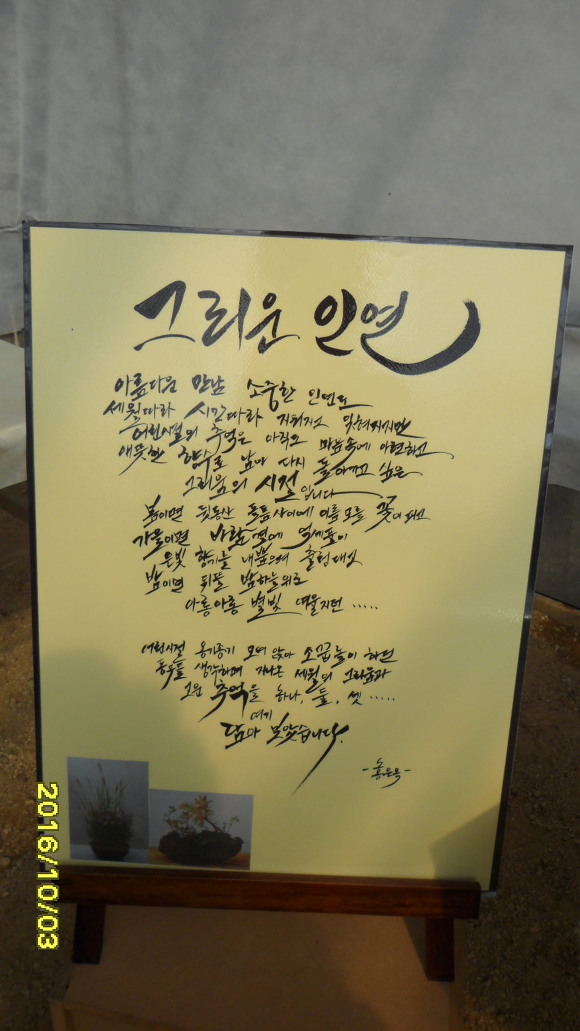 그리운 인연
아름다운 만남 소중한 인연도
세월따라 시간따라 지워지고 잊혀지지만
어린시절의 추억은 아직도 마음속에 아련하고
애틋한 향수로 남아 다시 돌아가고 싶은
그리움의 시절입니다
봄이면 뒷동산 돌틈사이에 이름모를 꽃이 피고
가을이면 바람결에 억새풀이
은빛 향기를 내뿜으며 출렁대고
밤이면 뒤뜰 밤하늘위로
아롱아롱 별빛 여울지던 .....
어린시절 옹기종기 모여 앉아 소꿉놀이 하던
동무들 생각하며 지나온 세월의 그리움과
고운 추억을 하나, 둘, 셋 .....
여기
담아 보았습니다.
-홍은옥-
2016/10/03